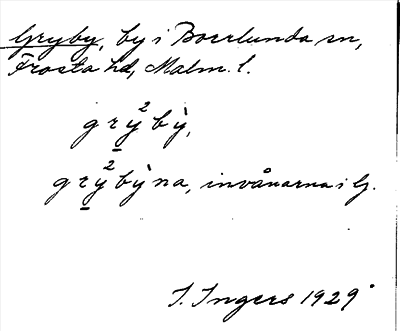 Gryby, by i Bosrlunda sn,
Frosta hd, Malm. l.
grỳ²bỳ,
grỳ²bỳna, invånarna i G.
I. Ingers 1929